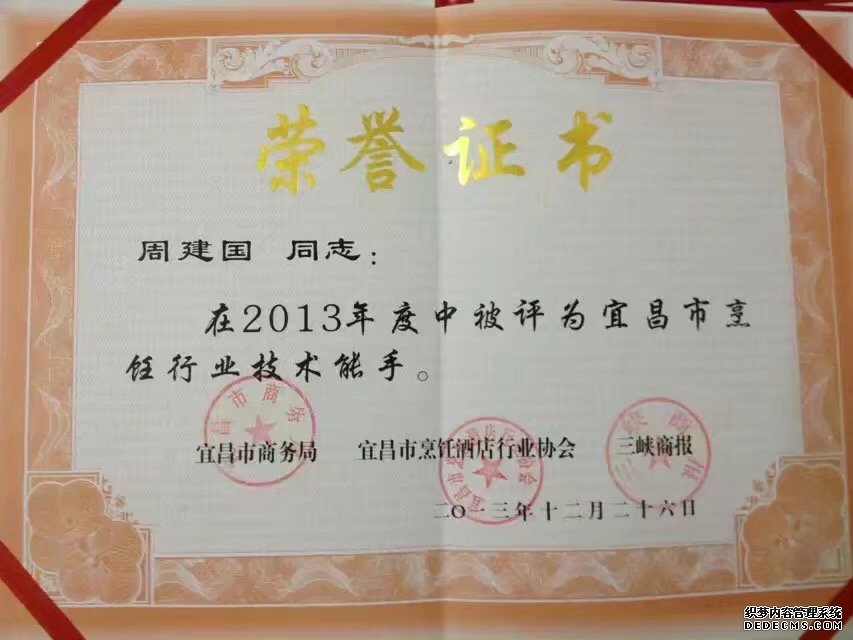 荣誉证书
周建国 同志：
在2013年度中被评为宜昌市烹
饪行业技术能手。
宜昌市商务局 宜昌市烹饪酒店行业协会 三峡商报
二〇一三年十二月二十六日
织梦内容管理系统
DEDECMS.COM